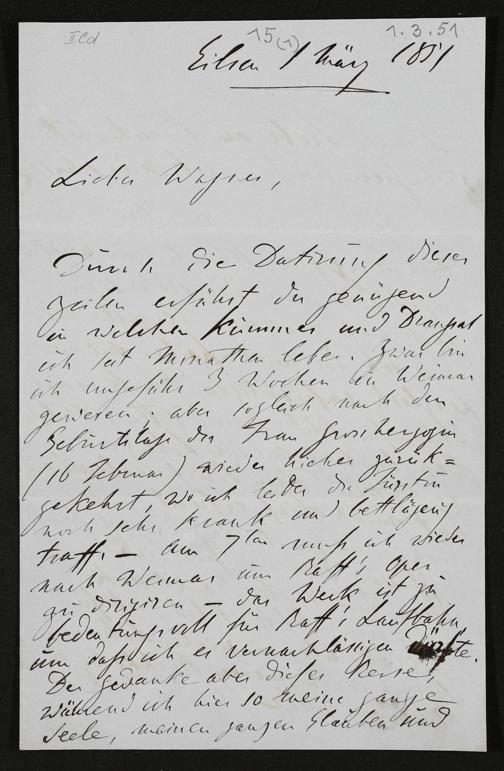 II Cd
15 (1)
1. 3. 51
Eilsen 1 März 1851
Lieber Wagner,
Durch die Datirung dieser
Zeilen erfährst du genügend
in welchen Kümmer und Drangsal
ich seit Monathen lebe. Zwar bin
ich ungefähr 3 Wochen in Weimar
gewesen; aber sogleich nach den
Geburtstage der Frau Grossherzogin
(16 Februar) wieder hieher zurük=
gekehrt, wo ich leider die Fürstin
noch sehr krank und bettlägrig
traffe — Am 7ten muss ich wieder
nach Weimar um Raff's Oper
zu dirigiren — das Werk ist zu
bedeutungsvoll für Raff's Laufbahn
um dass ich es vernachlässigen dürfte.
Der Gedanke aber dieser Reise,
während ich hier so meine ganze
Seele, meinen ganzen Glauben und